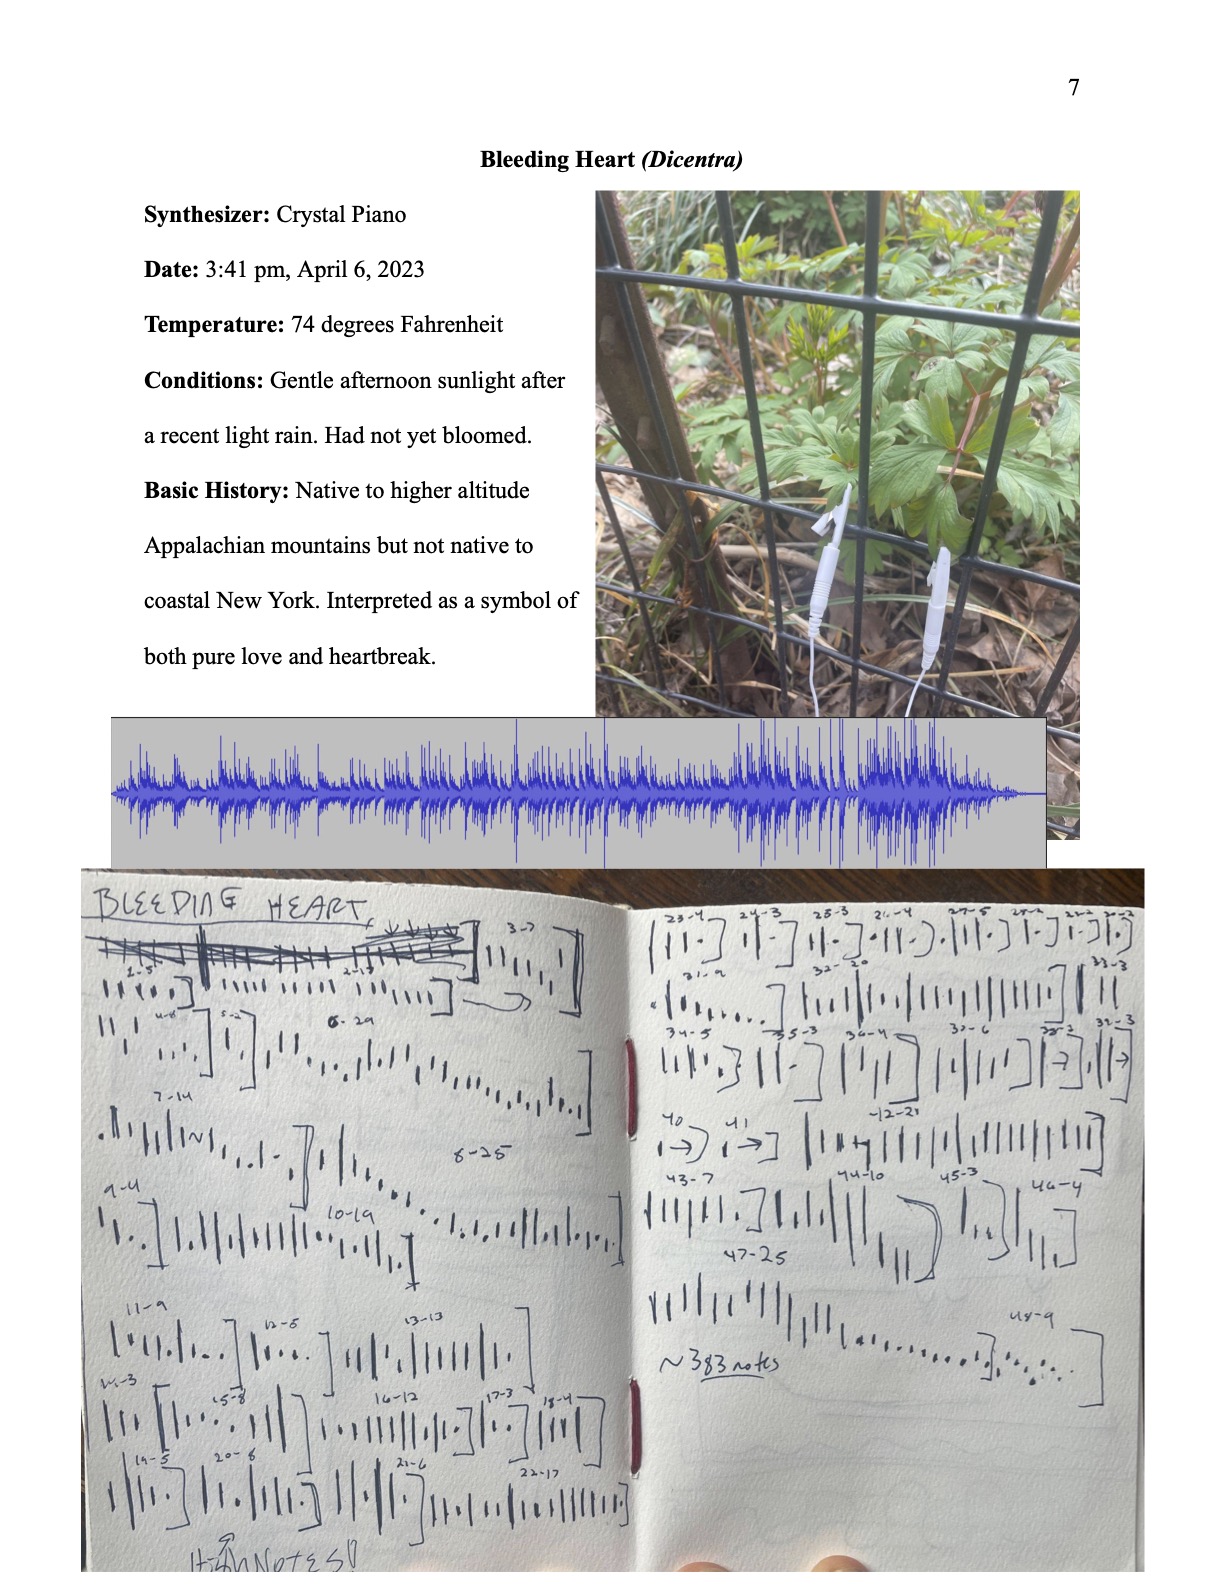 7
Bleeding Heart (Dicentra)
Synthesizer: Crystal Piano
Date: 3:41 pm, April 6, 2023
Temperature: 74 degrees Fahrenheit
Conditions: Gentle afternoon sunlight after
a recent light rain. Had not yet bloomed.
Basic History: Native to higher altitude
Appalachian mountains but not native to
coastal New York. Interpreted as a symbol of
both pure love and heartbreak.
BLEEDING HEART
3-7
1-5
5-2
6-29
7-14
8-25
9-4
10-19
11-9
13-13
15-8
16-12
17-3
18-4
19-5
20-8
21-6
22-17
High Notes!
23-4 24-3 25-3 26-4 27-5
31-9 32-20 33-3
34-5 35-3 36-4 37-6 38-2
40 41 42-21
43-7 44-10 45-3 46-4
47-25
48-9
~383 notes